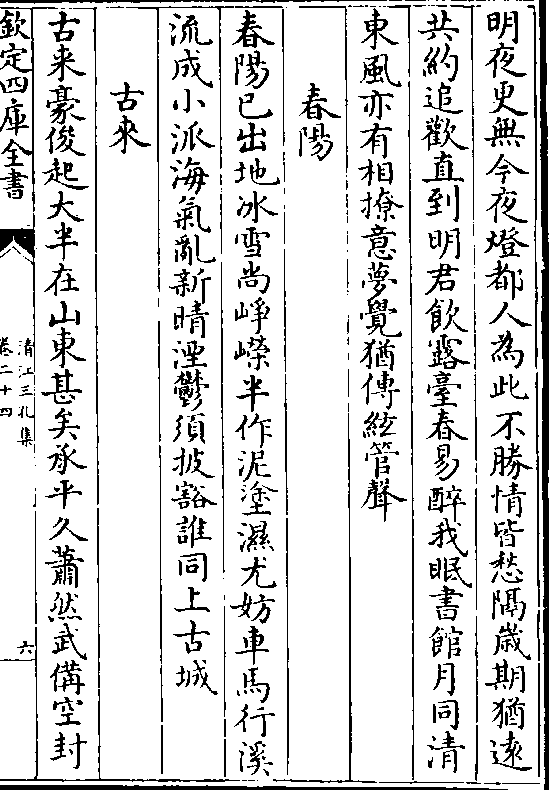 明夜更無今夜燈都人為此不勝情皆愁隔嵗期猶逺
共約追歡直到明君飲露臺春易醉我眠書館月同清
東風亦有相撩意夢覺猶傳絃管聲
春陽
春陽已出地冰雪尚崢嶸半作泥塗濕尤妨車馬行溪
流成小派海氣亂新晴湮鬱須披豁誰同上古城
古來
古来豪俊起大半在山東甚矣承平久蕭然武備空封
欽定四庫全書
清江三孔集
卷二十四
六